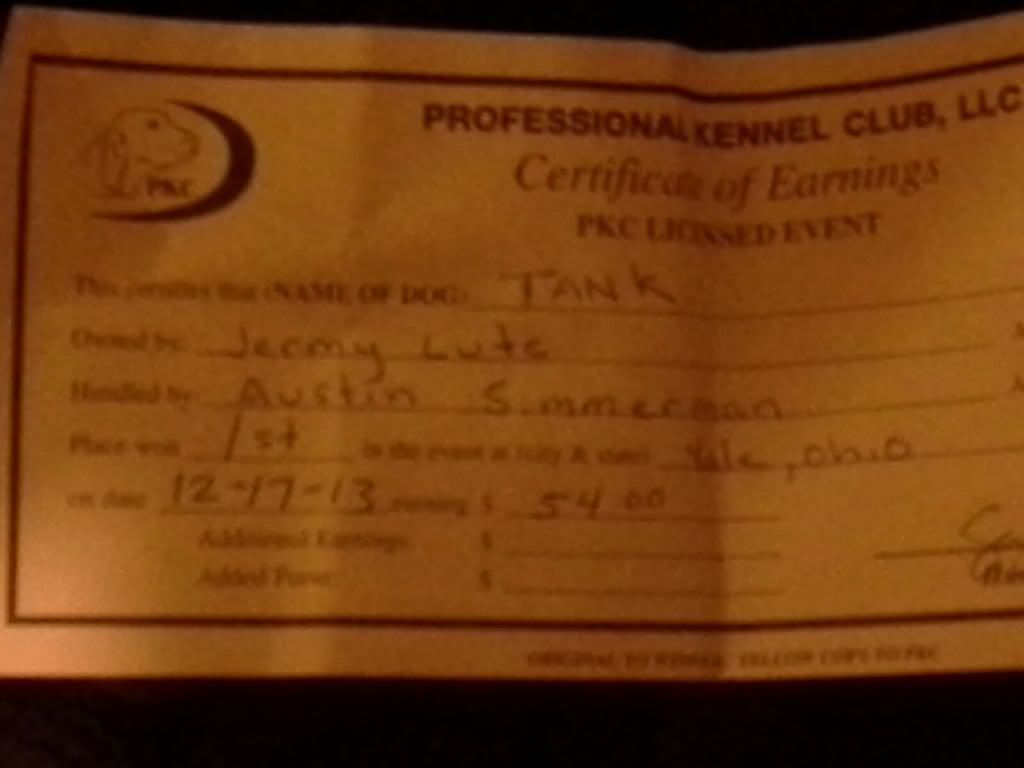 PKC
PROFESSIONAL KENNEL CLUB, LLC
Certificate of Earnings
PKC LICENSED EVENT
This certifies that (NAME OF DOG) TANK
Owned by: Jermy Lute
Handled by: Austin Simmerman
Place won 1st in the event at (city & state) , Ohio
on date 12-17-13 earning $ 54.00
Additional Earnings: $
Added Purse: $
ORIGINAL TO WINNER YELLOW COPY TO PKC